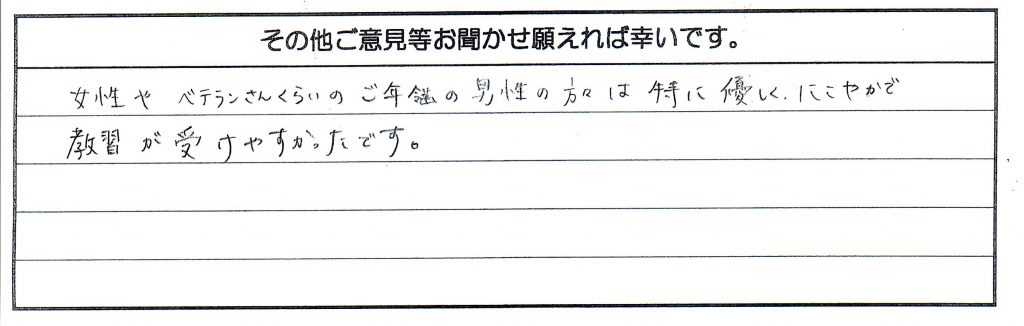 その他ご意見等お聞かせ願えれば幸いです。
女性や ベテランさんくらいの ご年齢の 男性の 方々は 特に 優しく、にこやかで
教習が受けやすかったです。